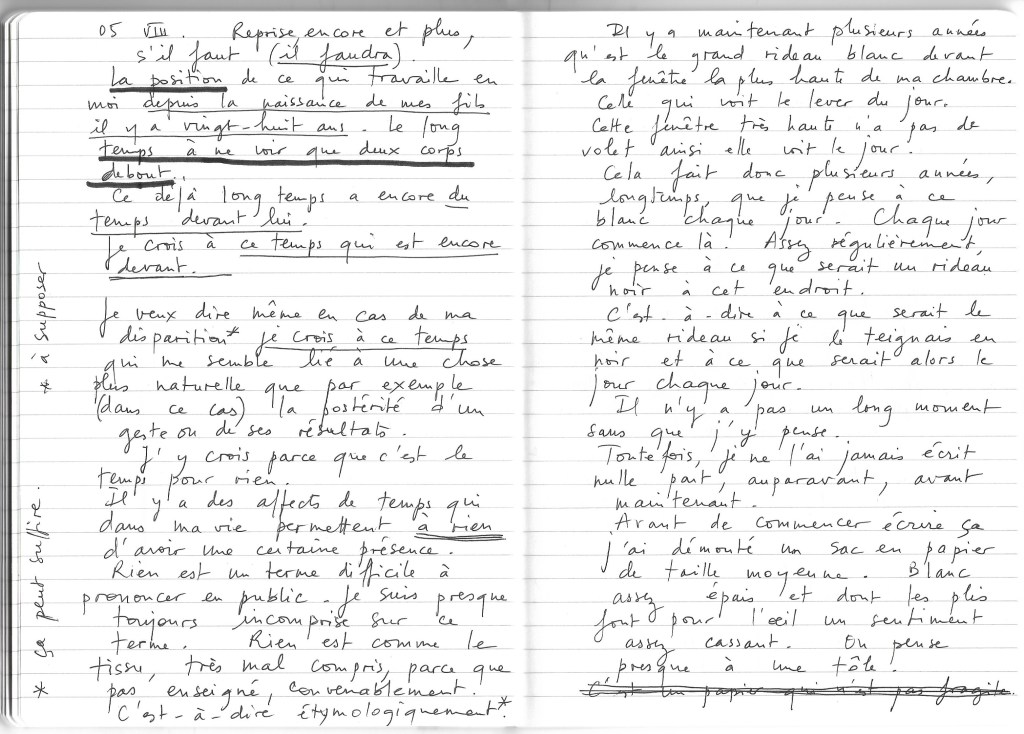 05 VIII. Reprise, encore et plus,
s'il faut (il faudra).
La position de ce qui travaille en
moi depuis la naissance de mes fils
il y a vingt-huit ans. Le long
temps à ne voir que deux corps
debout.
Ce déjà long temps a encore du
temps devant lui.
Je crois à ce temps qui est encore
devant.
Je veux dire même en cas de ma
disparition* je crois à ce temps
qui me semble lié à une chose
plus naturelle que par exemple
(dans ce cas) la postérité d'un
geste ou de ses résultats.
J'y crois parce que c'est le
temps pour rien.
Il y a des affects de temps qui
dans ma vie permettent à rien
d'avoir une certaine présence.
Rien est un terme difficile à
prononcer en public. Je suis presque
toujours incomprise sur ce
terme. Rien est comme le
tissu, très mal compris, parce que
pas enseigné, convenablement.
C'est-à-dire étymologiquement*.
* à supposer
* ça peut suffire.
Il y a maintenant plusieurs années
qu'est le grand rideau blanc devant
la fenêtre la plus haute de ma chambre.
Celle qui voit le lever du jour.
Cette fenêtre très haute n'a pas de
volet ainsi elle voit le jour.
Cela fait donc plusieurs années,
longtemps, que je pense à ce
blanc chaque jour. Chaque jour
commence là. Assez régulièrement,
je pense à ce que serait un rideau
noir à cet endroit.
C'est-à-dire à ce que serait le
même rideau si je le teignais en
noir et à ce que serait alors le
jour chaque jour.
Il n'y a pas un long moment
sans que j'y pense.
Toutefois, je ne l'ai jamais écrit
nulle part, auparavant, avant
maintenant.
Avant de commencer écrire ça
j'ai démonté un sac en papier
de taille moyenne. Blanc
assez épais et dont les plis
font pour l'œil un sentiment
assez cassant. On pense
presque à une tôle.
C'est un papier qui n'est pas fragile.